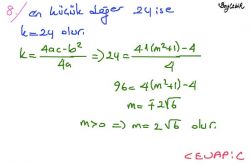 Böylelik
8. en küçük değer 24 ise
k=24 olur.
k = \frac{4ac-b^2}{4a} ⇒ 24 = \frac{4.1(m^2+1)-4}{4}
96 = 4(m^2+1)-4
m = ∓2√6
m>0 ⇒ m = 2√6 olur.
CEVAP: C